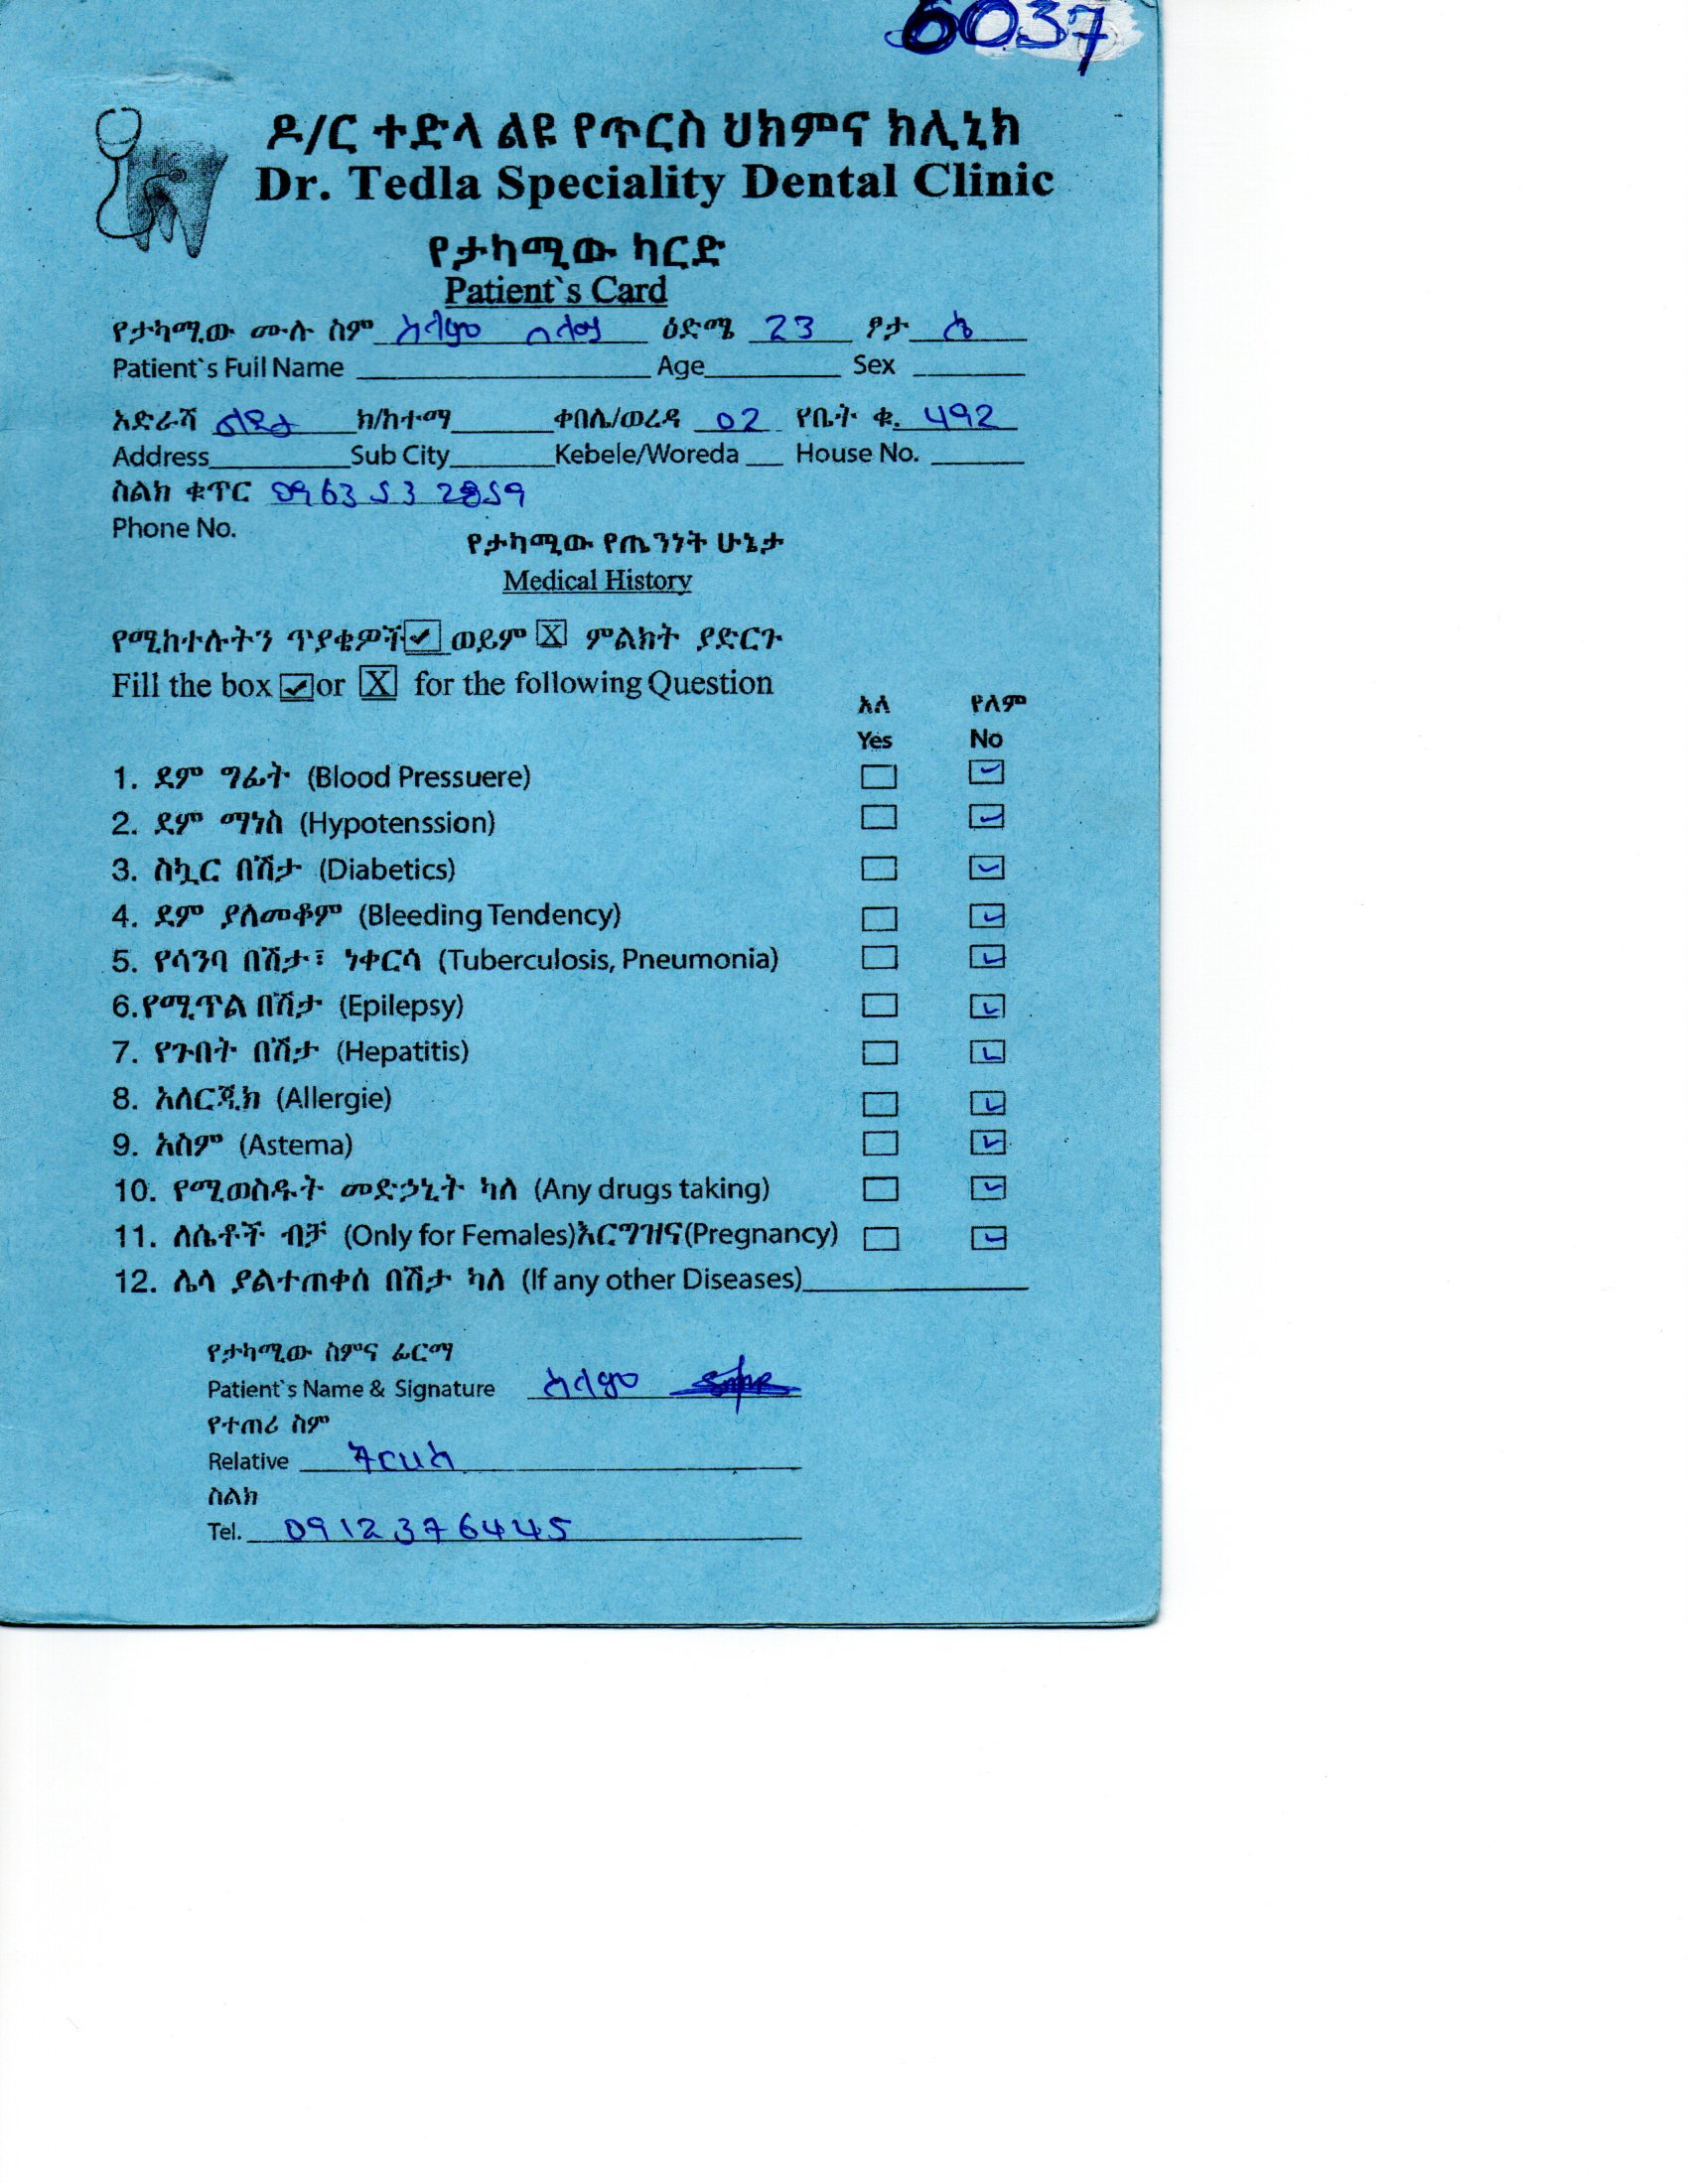 6037
ዶ/ር ተድላ ልዩ የጥርስ ህክምና ክሊኒክ
Dr. Tedla Speciality Dental Clinic
የታካሚው ካርድ
Patient`s Card
የታካሚው ሙሉ ስም ሰላም ዕድሜ 23 ፆታ ሴ
Patient`s Full Name Age Sex
አድራሻ ክ/ከተማ ቀበሌ/ወረዳ 02 የቤት ቁ. 492
Address Sub City Kebele/Woreda House No.
ስልክ ቁጥር 0963532859
Phone No.
የታካሚው የጤንነት ሁኔታ
Medical History
የሚከተሉትን ጥያቄዎች ✓ ወይም X ምልክት ያድርጉ
Fill the box ✓ or X for the following Question
አለ የለም
Yes No
1. ደም ግፊት (Blood Pressuere) ✓
2. ደም ማነስ (Hypotenssion) ✓
3. ስኳር በሽታ (Diabetics) ✓
4. ደም ያለመቆም (Bleeding Tendency) ✓
5. የሳንባ በሽታ፣ ነቀርሳ (Tuberculosis, Pneumonia) ✓
6.የሚጥል በሽታ (Epilepsy) ✓
7. የጉበት በሽታ (Hepatitis) ✓
8. አለርጂክ (Allergie) ✓
9. አስም (Astema) ✓
10. የሚወስዱት መድኃኒት ካለ (Any drugs taking) ✓
11. ለሴቶች ብቻ (Only for Females)እርግዝና(Pregnancy) ✓
12. ሌላ ያልተጠቀሰ በሽታ ካለ (If any other Diseases)
የታካሚው ስምና ፊርማ
Patient`s Name & Signature ሰላም
የተጠሪ ስም
Relative ትርሀስ
ስልክ
Tel. 0912376445